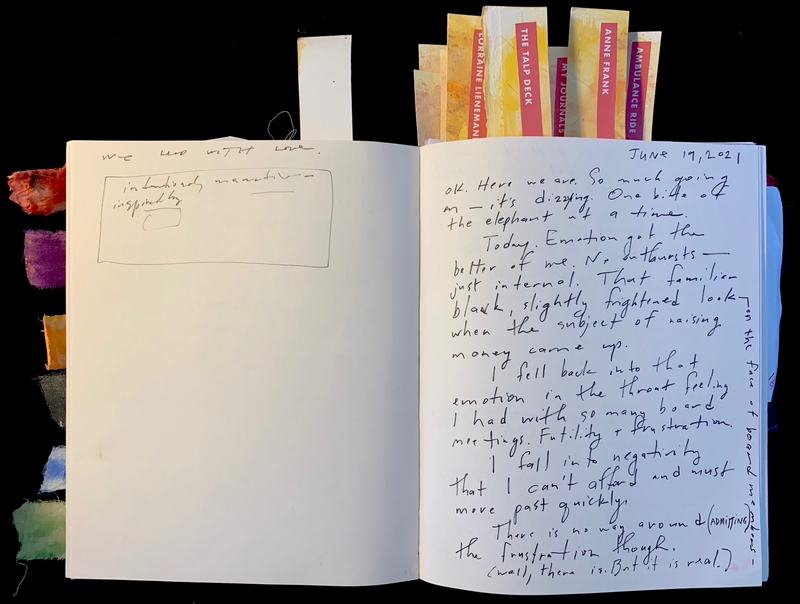 LORRAINE LIENEMAN
THE TALP DECK
MY JOURNALS
ANNE FRANK
AMBULANCE RIDE
we lead with love.
intentional narrative —
inspired by
JUNE 19, 2021
OK. Here we are. So much going
on — it's dizzying. One bite of
the elephant at a time.
Today. Emotion got the
better of me. No outbursts —
just internal. That familiar
blank, slightly frightened look
when the subject of raising
money came up.
on the face of board members —
I fell back into that
emotion in the throat feeling
I had with so many board
meetings. Futility + frustration.
I fall into negativity
that I can't afford and must
move past quickly.
There is no way around (ADMITTING)
the frustration though.
(well, there is. But it is real.)